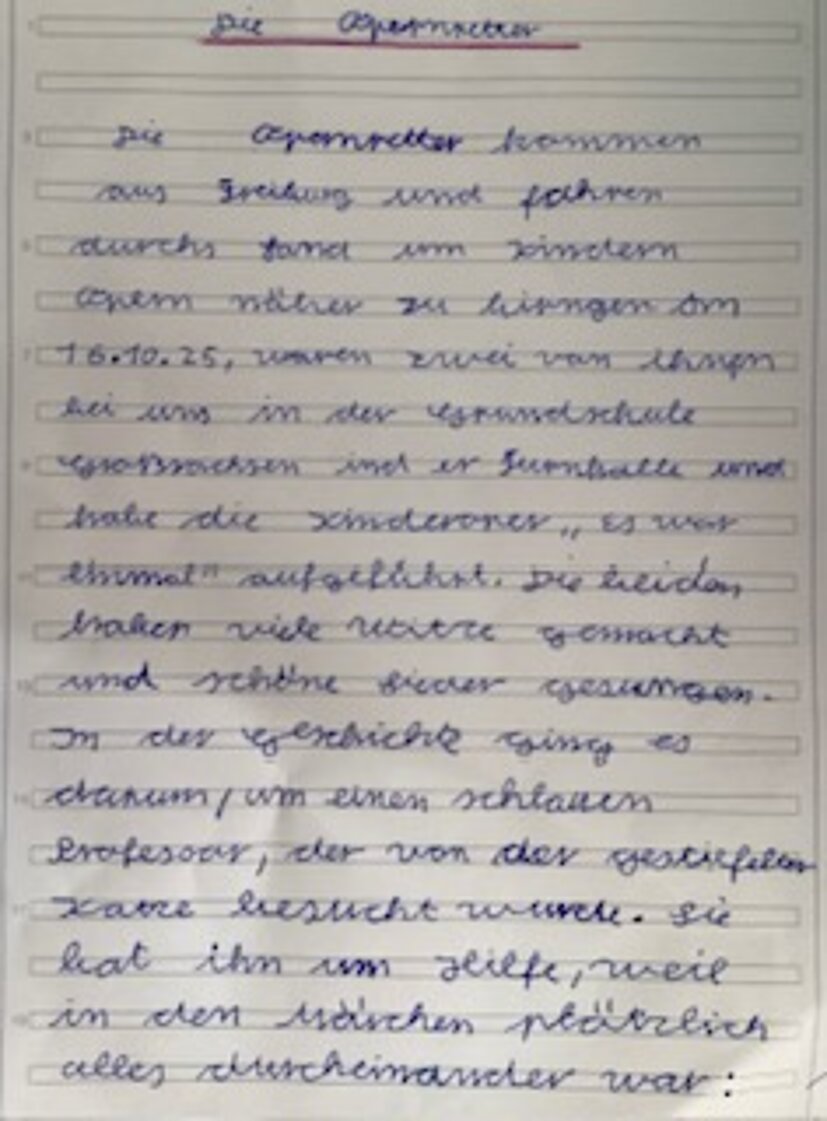 Die Opernretter
Die Opernretter kommen
aus Freiburg und fahren
durchs Land um Kindern
Opern näher zu biringen Am
16.10.25, waren zwei von Ihnen
bei uns in der Grundschule
Großsachsen ind er Turnhalle und
habe die Kinderoper „Es war
Einmal" aufgeführt. Die beiden
haben viele Witze gemacht
und schöne Lieder gesungen.
In der Geschichte ging es
darum, um einen schlauen
Professor, der von der gestiefelten
Katze besucht wurde. Sie
bat ihn um Hilfe, weil
in den Märchen plötzlich
alles durcheinander war: